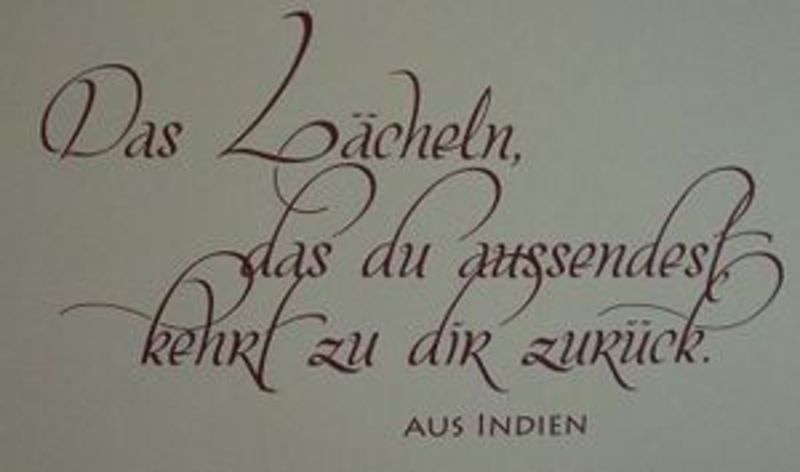 Das Lächeln,
das du aussendest,
kehrt zu dir zurück.
AUS INDIEN